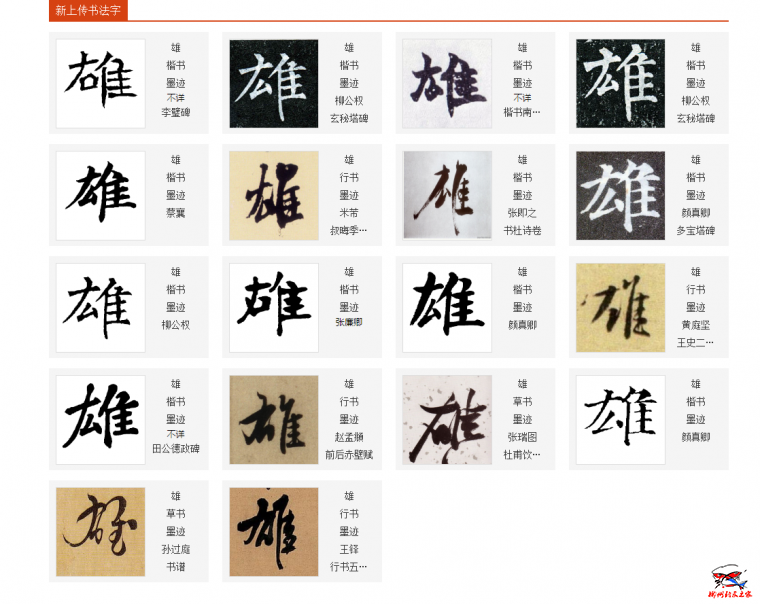 新上传书法字
雄
雄
楷书
墨迹
不详
李璧碑
雄
雄
楷书
墨迹
柳公权
玄秘塔碑
雄
雄
楷书
墨迹
不详
楷书南…
雄
雄
楷书
墨迹
柳公权
玄秘塔碑
雄
雄
楷书
墨迹
蔡襄
雄
雄
行书
墨迹
米芾
叔晦季…
雄
雄
楷书
墨迹
张即之
书杜诗卷
雄
雄
楷书
墨迹
颜真卿
多宝塔碑
雄
雄
楷书
墨迹
柳公权
雄
雄
楷书
墨迹
张廉卿
雄
雄
楷书
墨迹
颜真卿
雄
雄
行书
墨迹
黄庭坚
王史二…
雄
雄
楷书
墨迹
不详
田公德政碑
雄
雄
行书
墨迹
赵孟頫
前后赤壁赋
雄
雄
草书
墨迹
张瑞图
杜甫饮…
雄
雄
楷书
墨迹
颜真卿
雄
雄
草书
墨迹
孙过庭
书谱
雄
雄
行书
墨迹
王铎
行书五…